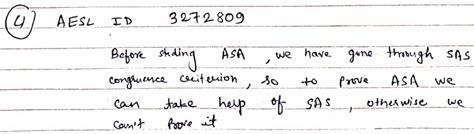 4 AESL ID 3272809
Before stding ASA, we have gone through SAS
congruence criterion, so to prove ASA we
can take help of SAS, otherwise we
can't Prove it